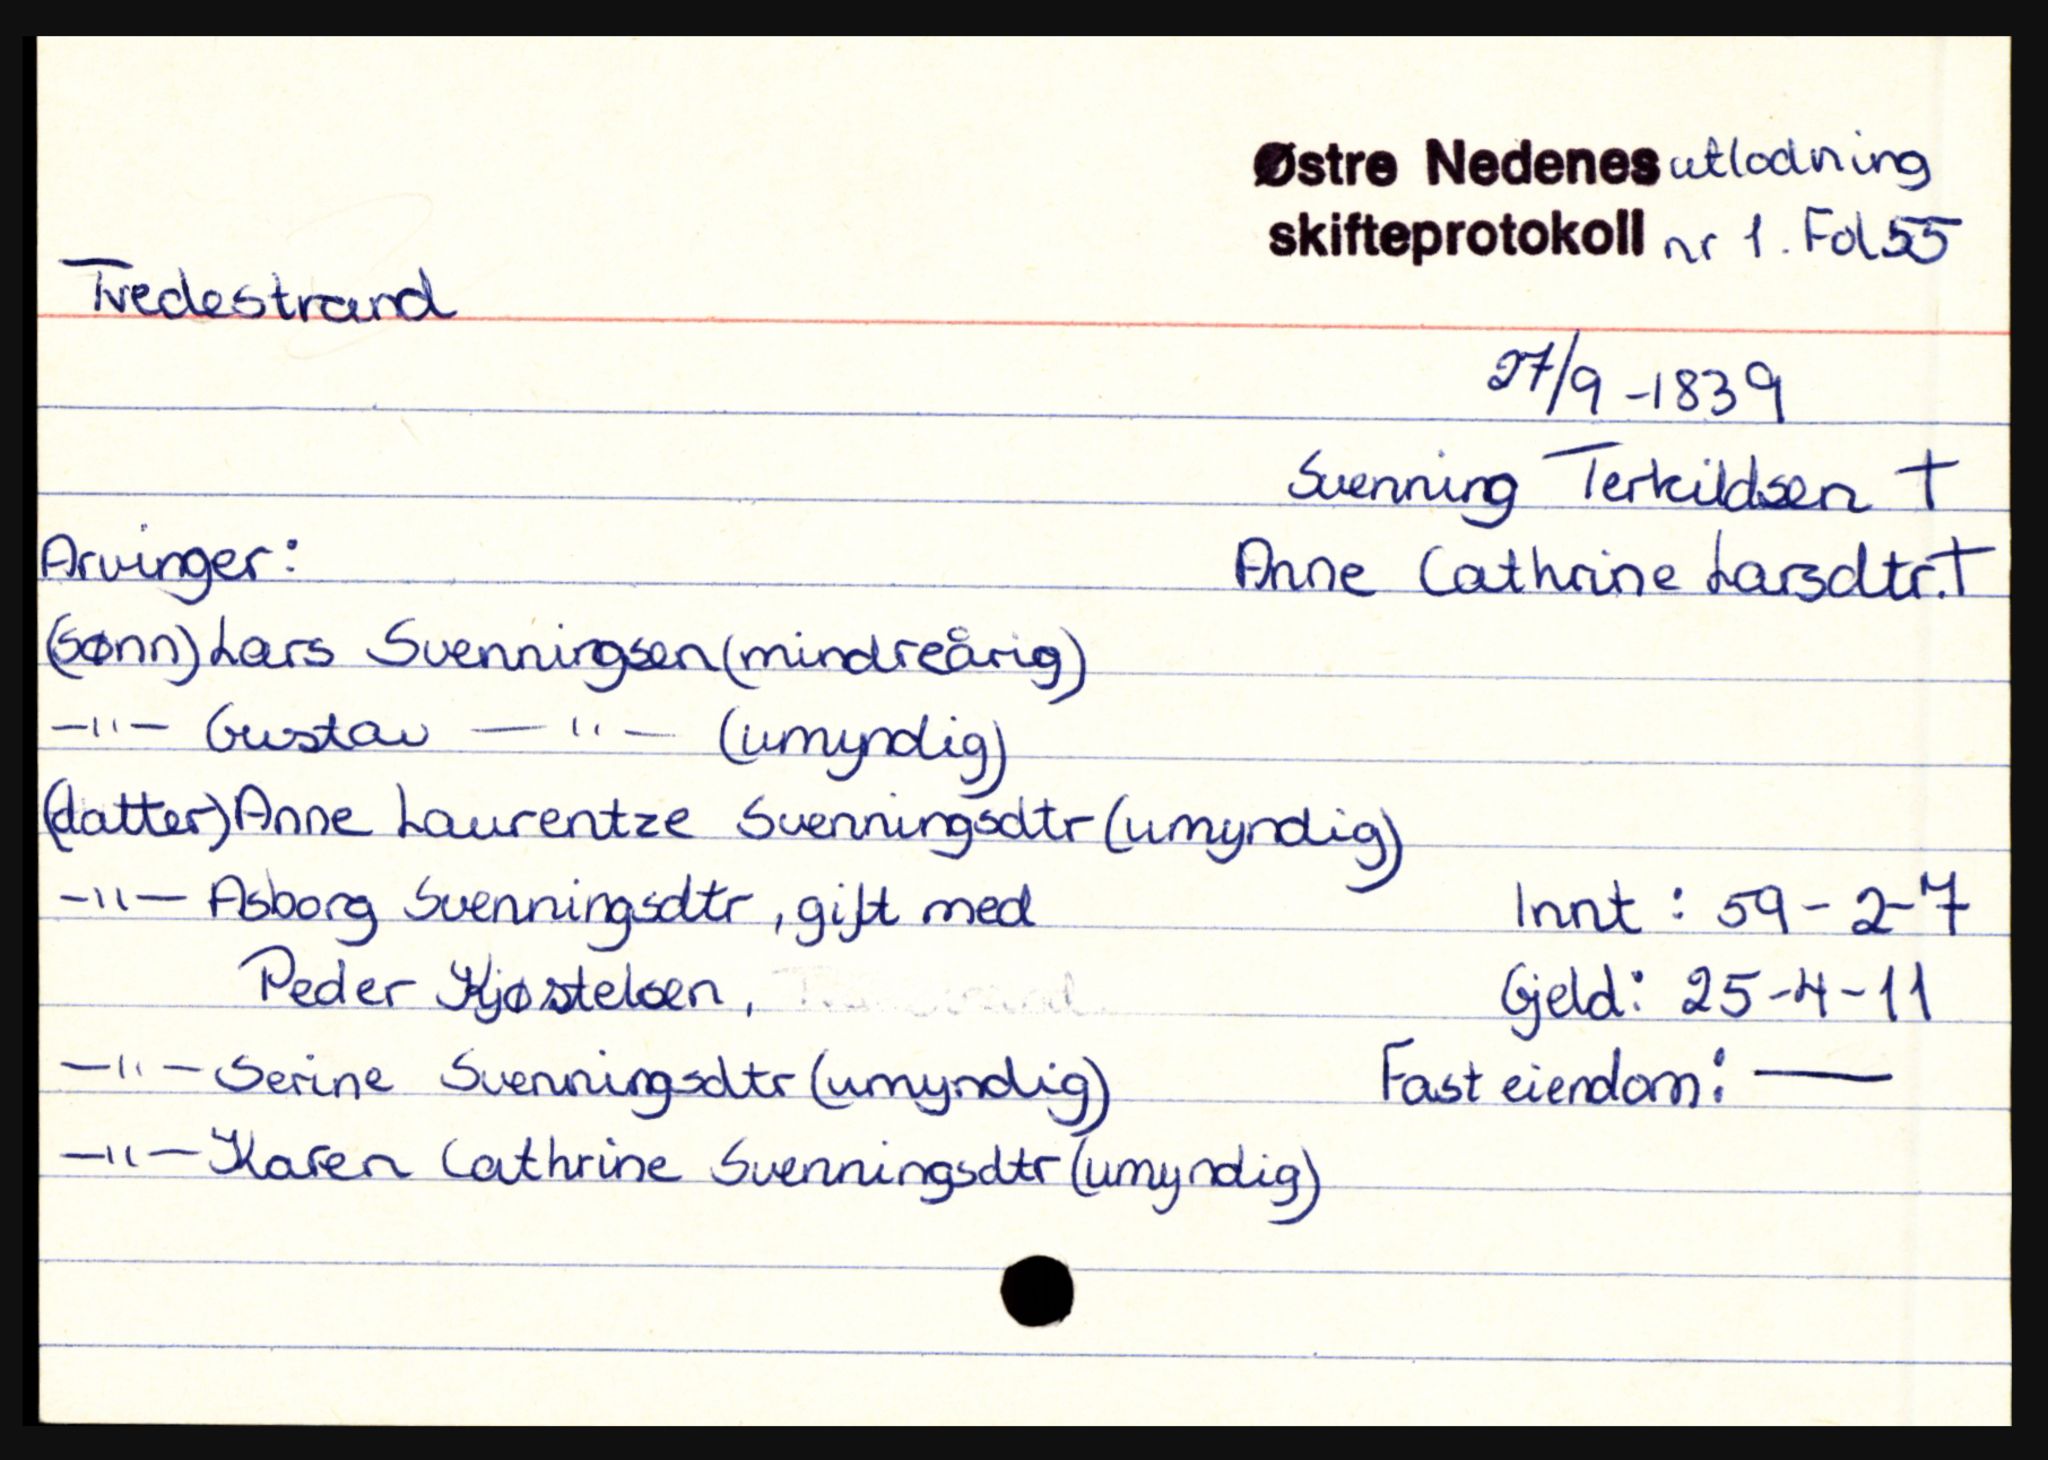 Østre Nedenes utlodning
skifteprotokoll nr 1. Fol 55
Tvedestrand
27/9 -1839
Svenning Terkildsen †
Arvinger:
Anne Cathrine Larsdtr. †
(sønn) Lars Svenningsen (mindreårig)
-"- Gustav -"- (umyndig)
(datter) Anne Laurentze Svenningsdtr (umyndig)
-"- Asborg Svenningsdtr, gift med
Innt: 59-2-7
Peder Kjøstelsen,
Gjeld: 25-4-11
-"- Serine Svenningsdtr (umyndig)
Fast eiendom: —
-"- Karen Cathrine Svenningsdtr (umyndig)